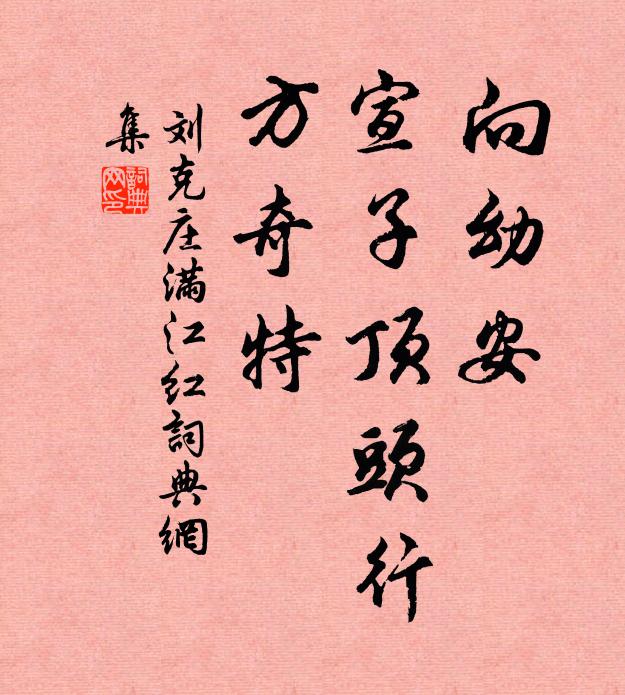 向幼安
宣子顶頭行
方奇特
刘克庄满江红詞典網
集
詞典网印